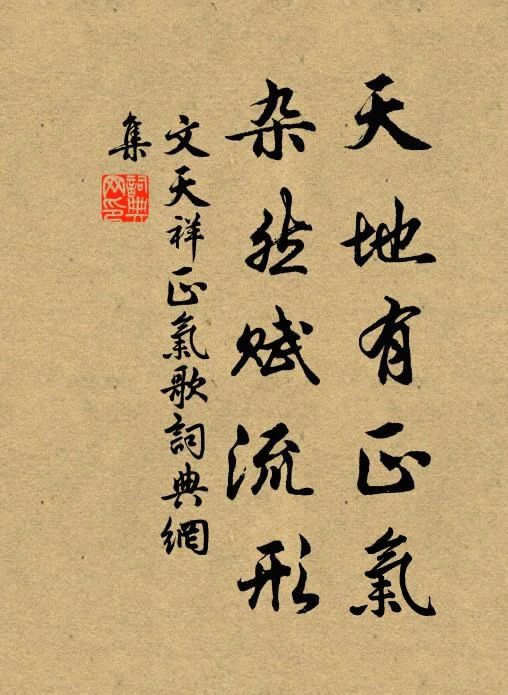 天地有正氣
杂然赋流形
文天祥正氣歌詞典網
集
詞典网印